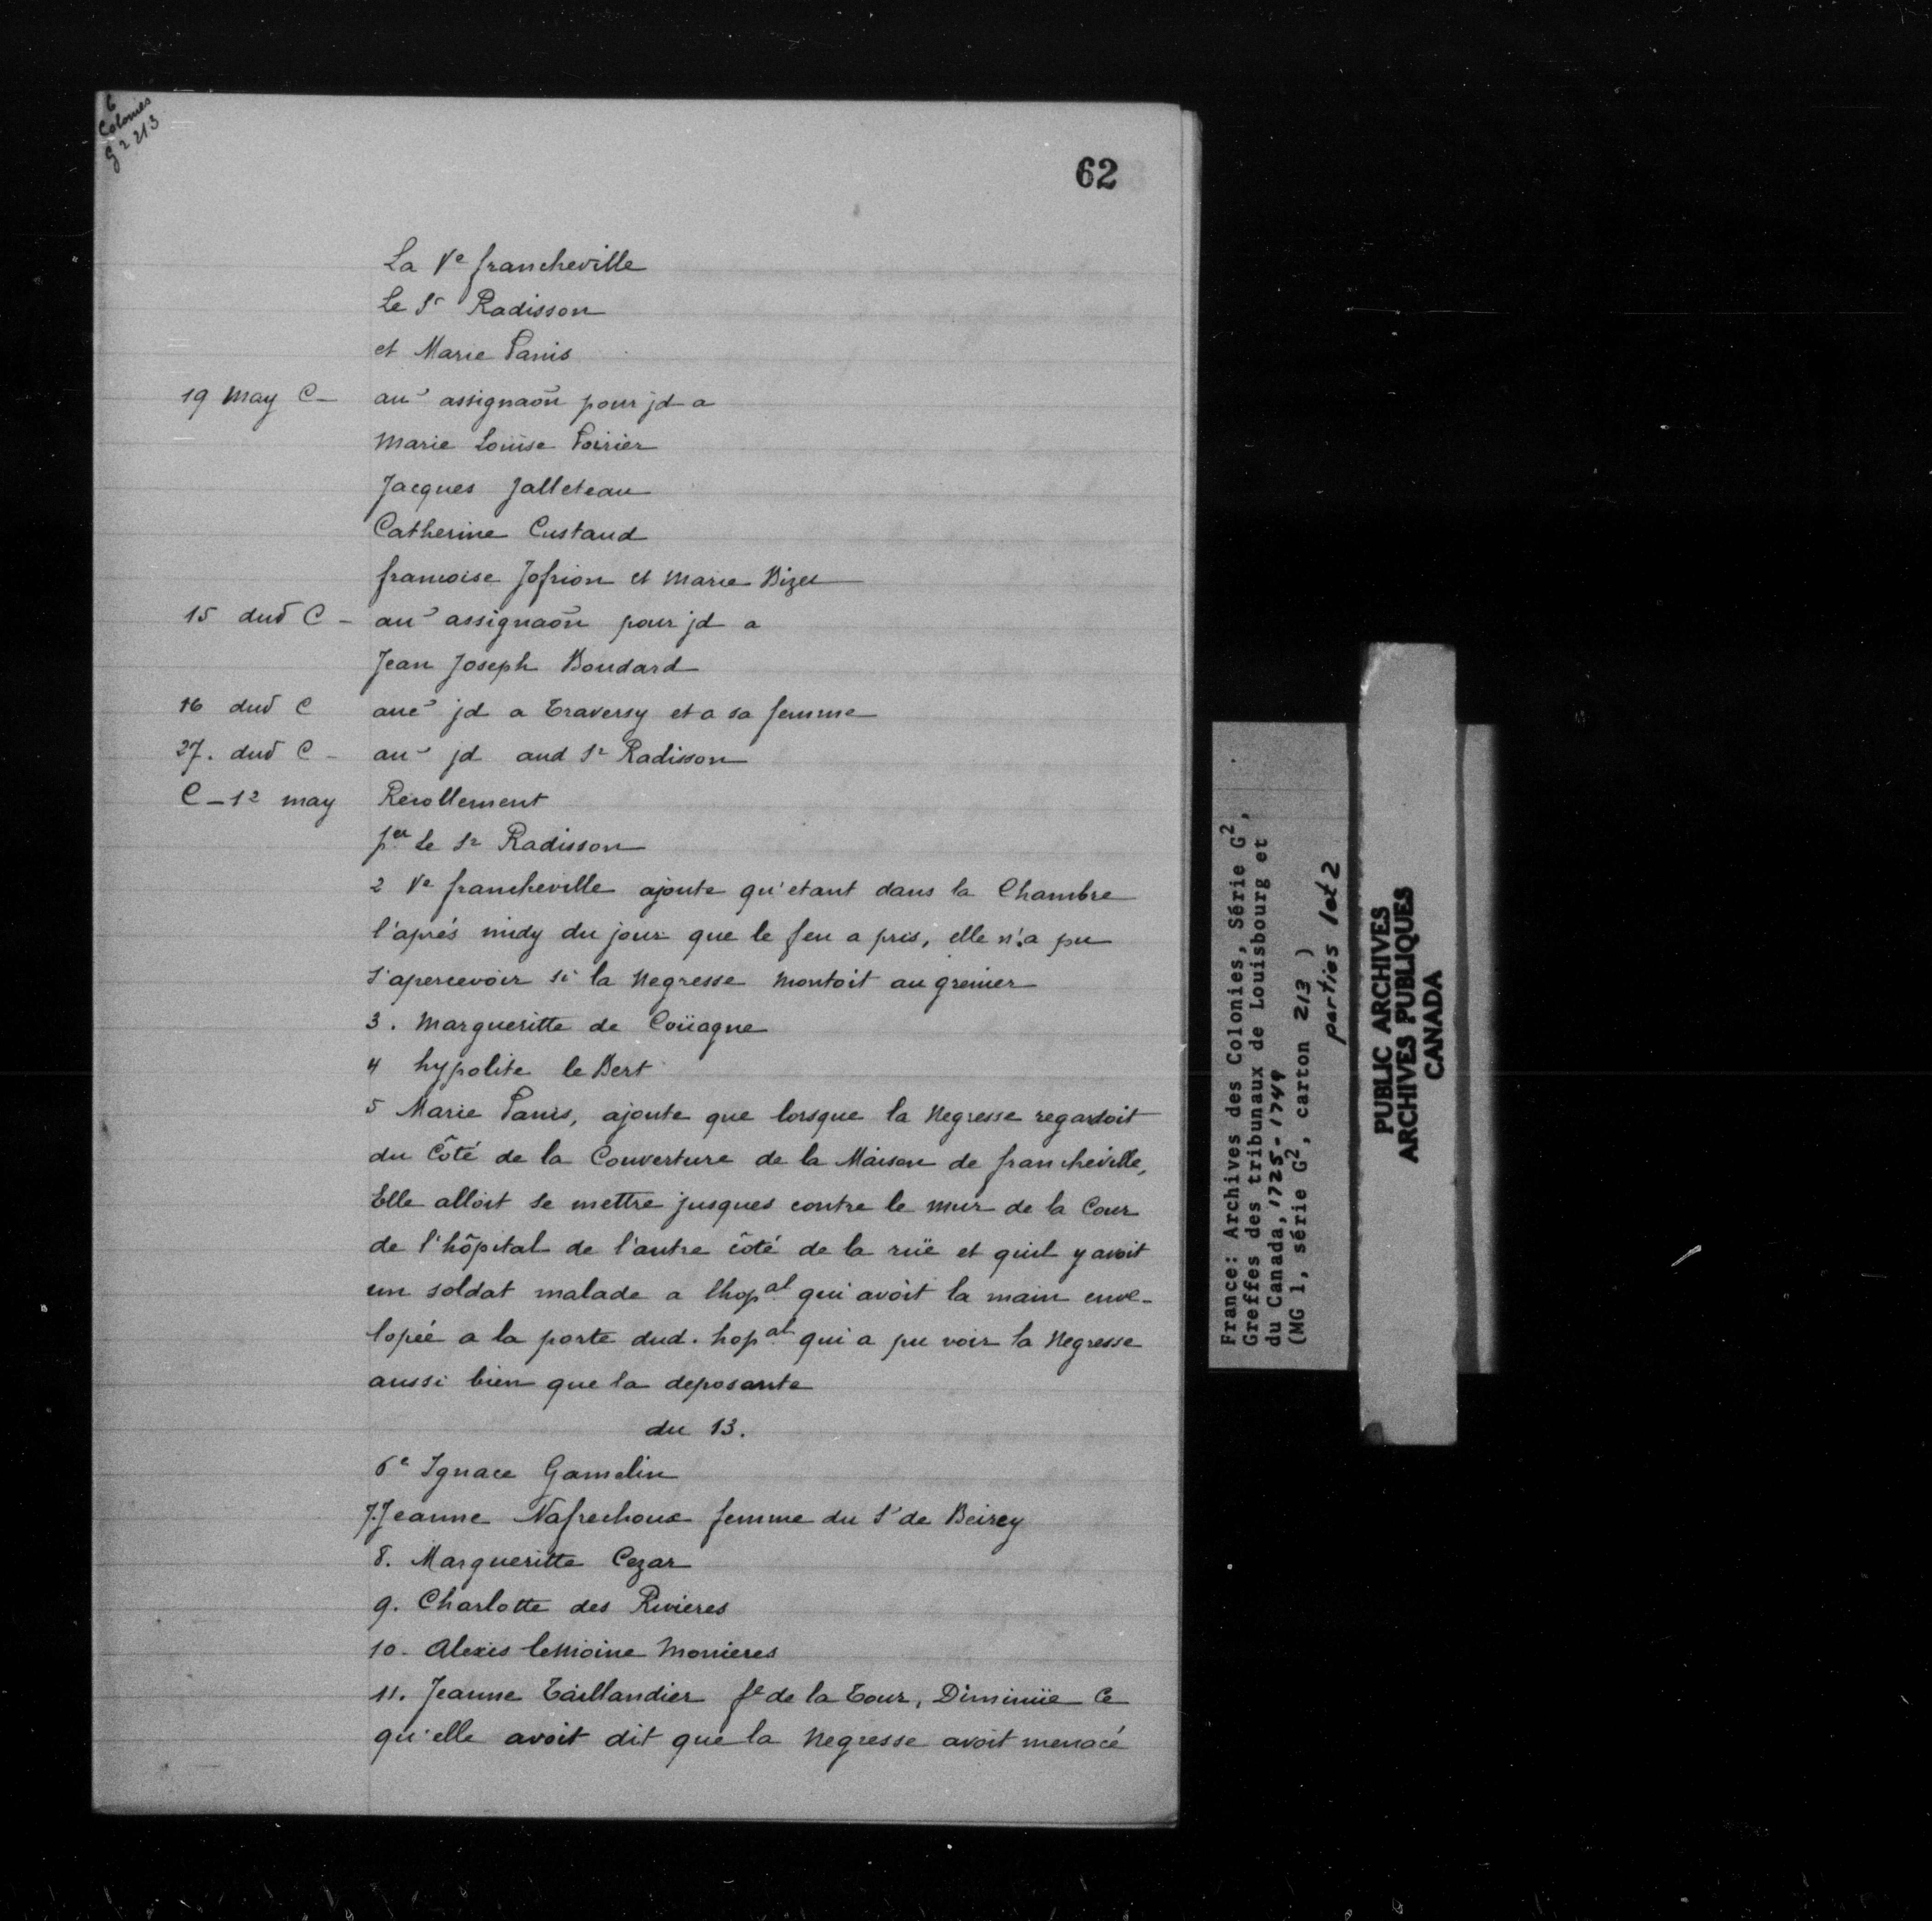 6
Colonies
G2 213
62
La Ve francheville
Le Sr Radisson
et Marie Panis
19 May C— au̅ assignaōn pour jd a
Marie Louise Poirier
Jacques Jalleteau
Catherine Custaud
francoise Jofrion et Marie Bizet
15 dud C — au̅ assignaōn pour jd a
Jean Joseph Boudard
16 dud C aue̅ jd a Traversy et a sa femme
27. dud C — au̅ jd aud Sr Radisson
C — 12 may Recollement
per Le Sr Radisson
2 Ve francheville ajoute qu'etant dans la Chambre
l'aprés midy du jour que le feu a pris, elle n'a pu
s'apercevoir si la Negresse montoit au grenier
3. Margueritte de Coüagne
4 hypolite le Bert
5 Marie Panis, ajoute que lorsque la Negresse regardoit
du Côté de la Couverture de la Maison de francheville,
Elle alloit se mettre jusques contre le mur de la Cour
de l'hôpital de l'autre côté de la ruë et quil y avoit
un soldat malade a lhopal qui avoit la main enve-
lopéé a la porte dud. hopal qui a pu voir la Negresse
aussi bien que la deposante
du 13.
6e Ignace Gamelin
7. Jeanne Nafrechoux femme du Sr de Beirey
8. Margueritte Cezar
9. Charlotte des Rivieres
10. Alexis leMoine Monieres
11. Jeanne Taillandier fe de la Tour, Diminüe Ce
qu'elle avoit dit que la Negresse avoit menacé
France: Archives des Colonies, Série G2,
Greffes des tribunaux de Louisbourg et
du Canada, 1725-1749
(MG 1, série G2, carton 213 )
parties 1 et 2
PUBLIC ARCHIVES
ARCHIVES PUBLIQUES
CANADA